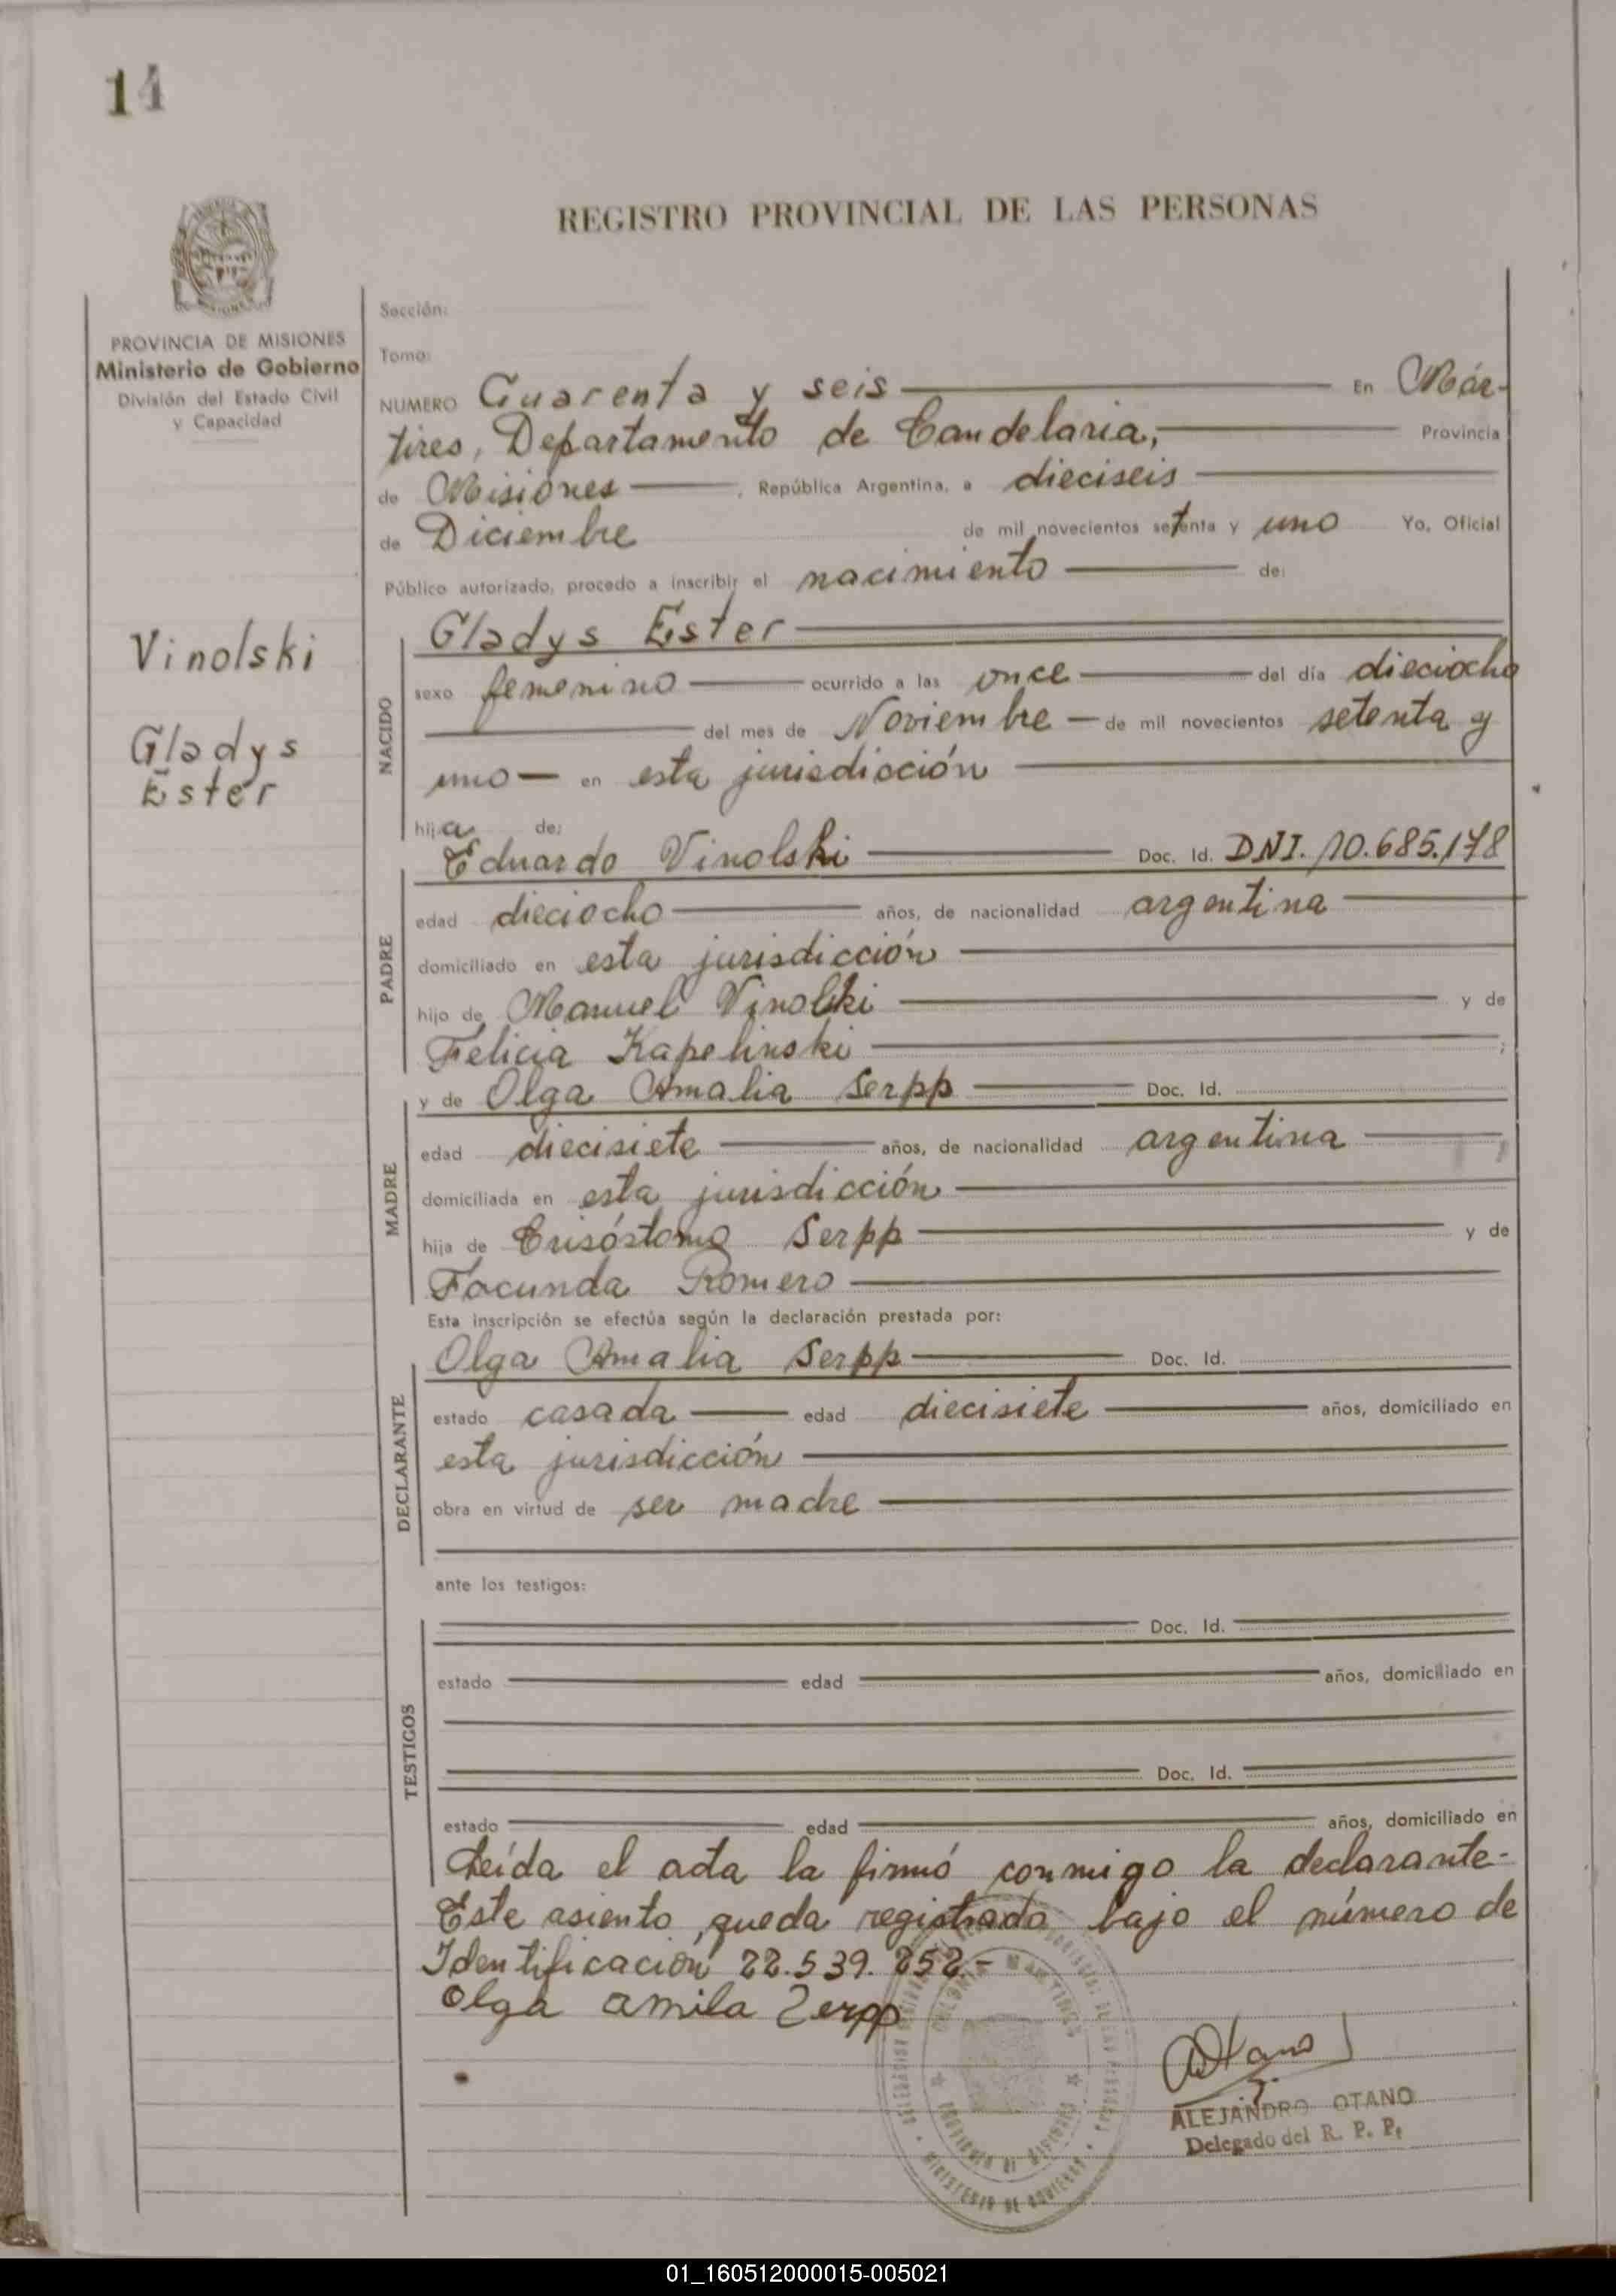 14
REGISTRO PROVINCIAL DE LAS PERSONAS
PROVINCIA DE MISIONES
Ministerio de Gobierno
División del Estado Civil
y Capacidad
Vinolski
Gladys
Ester
Sección:
Tomo:
NUMERO Cuarenta y seis En Már-
tires, Departamento de Candelaria, Provincia
de Misiones, República Argentina, a dieciseis
de Diciembre de mil novecientos setenta y uno Yo, Oficial
Público autorizado, procedo a inscribir el nacimiento de:
NACIDO
Gladys Ester
sexo femenino ocurrido a las once del día dieciocho
del mes de Noviembre de mil novecientos setenta y
uno en esta jurisdicción
hija de:
PADRE
Eduardo Vinolski Doc. Id. DNI. 10.685.178
edad dieciocho años, de nacionalidad argentina
domiciliado en esta jurisdicción
hijo de Manuel Vinolski y de
Felicia Kapelinski ;
MADRE
y de Olga Amalia Serpp Doc. Id.
edad diecisiete años, de nacionalidad argentina
domiciliada en esta jurisdicción
hija de Crisóstomo Serpp y de
Facunda Romero
Esta inscripción se efectúa según la declaración prestada por:
DECLARANTE
Olga Amalia Serpp Doc. Id.
estado casada edad diecisiete años, domiciliado en
esta jurisdicción
obra en virtud de ser madre
ante los testigos:
TESTIGOS
Doc. Id.
estado edad años, domiciliado en
Doc. Id.
estado edad años, domiciliado en
Leída el acta la firmó conmigo la declarante.-
Este asiento, queda registrado bajo el número de
Identificación 22.539.252.-
Olga amila Zerpp
ALEJANDRO OTANO
Delegado del R. P. P.
MINISTERIO DE GOBIERNO
PROVINCIA DE MISIONES
01_160512000015-005021